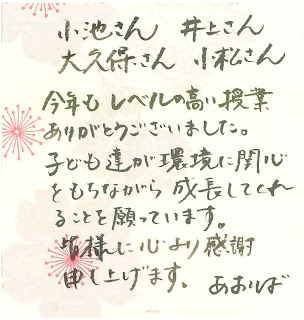 小池さん 井上さん
大久保さん 小松さん
今年も レベルの高い授業
ありがとうございました。
子ども達が環境に関心
をもちながら 成長してくれ
ることを願っています。
皆様に心より感謝
申し上げます。 あおしば